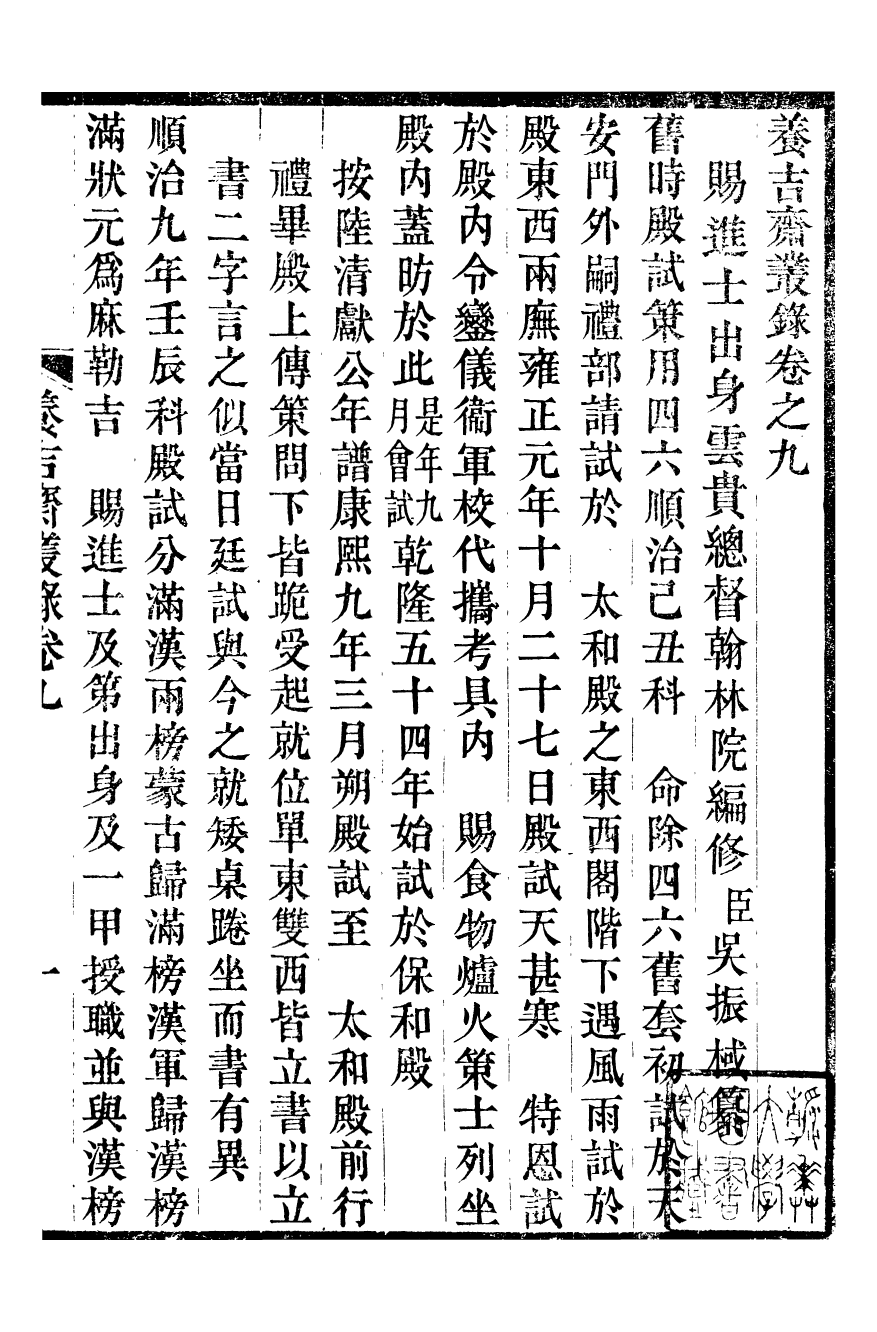 養吉齋叢錄卷之九
賜進士出身雲貴總督翰林院編修臣吳振棫纂
舊時殿試策用四六順治己丑科 命除四六舊套初試於天
安門外嗣禮部請試於 太和殿之東西閣階下遇風雨試於
殿東西兩廡雍正元年十月二十七日殿試天甚寒 特恩試
於殿內令鑾儀衞軍校代攜考具內 賜食物爐火策士列坐
殿內蓋昉於此是年九月會試乾隆五十四年始試於保和殿
按陸清獻公年譜康熙九年三月朔殿試至 太和殿前行
禮畢殿上傳策問下皆跪受起就位單東雙西皆立書以立
書二字言之似當日廷試與今之就矮桌踡坐而書有異
順治九年壬辰科殿試分滿漢兩榜蒙古歸滿榜漢軍歸漢榜
滿狀元爲麻勒吉 賜進士及第出身及一甲授職並與漢榜
養吉齋叢錄卷九
一